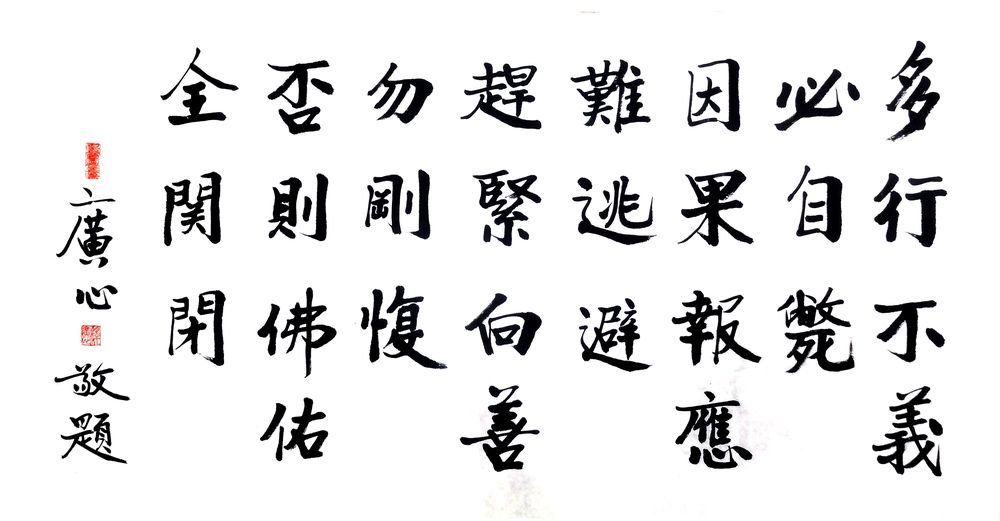 多行不義
必自斃
因果報應
難逃避
趕緊向善
勿剛愎
否則佛佑
全関閉
廣心
敬題